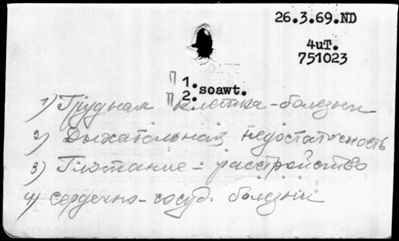 26.3.69.ND
4uT.
751023
П 1.soawt.
П 2.
1) Грудная клетка - болезни
2) Дыхательная недостаточность
3) Глотание - расстройство
4) сердечно-сосуд. болезни